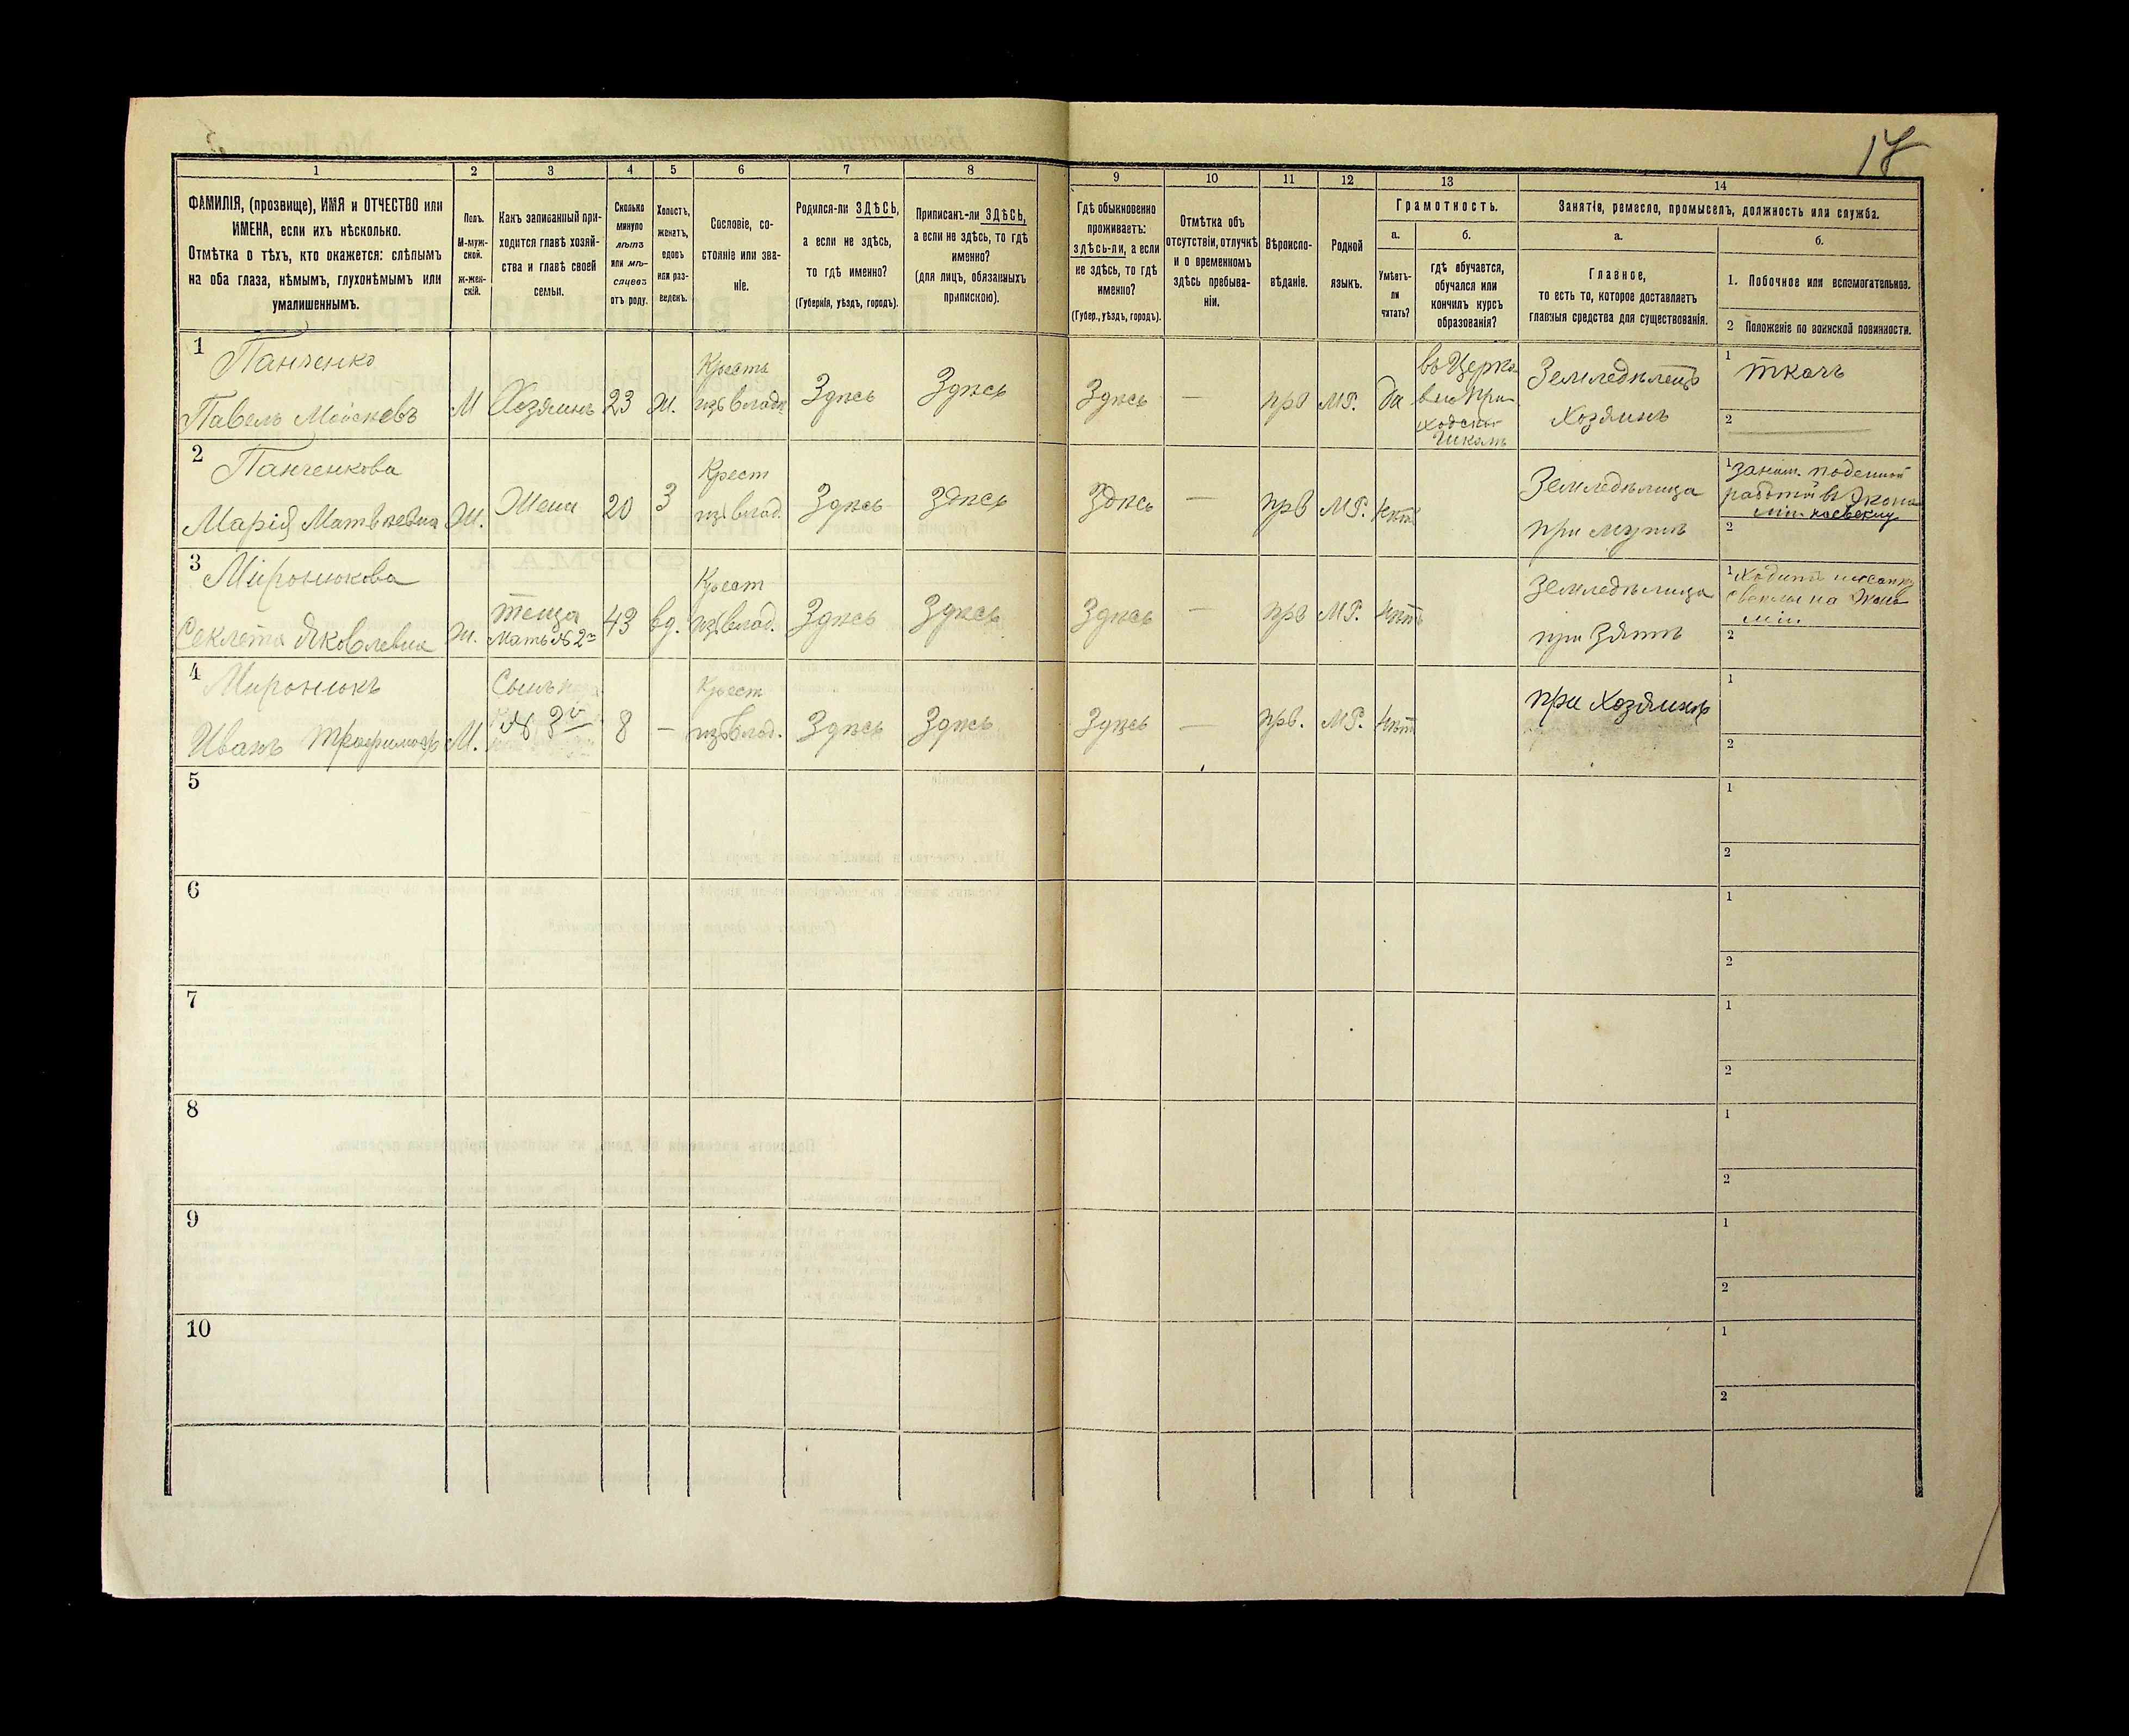 17
1 2 3 4 5 6 7 8 9 10 11 12 13 14
ФАМИЛІЯ, (прозвище), ИМЯ и ОТЧЕСТВО или
ИМЕНА, если ихъ нѣсколько.
Отмѣтка о тѣхъ, кто окажется: слѣпымъ
на оба глаза, нѣмымъ, глухонѣмымъ или
умалишеннымъ.
Полъ.
М-муж-
ской.
Ж-жен-
скій.
Какъ записанный при-
ходится главѣ хозяй-
ства и главѣ своей
семьи.
Сколько
минуло
лѣтъ
или мѣ-
сяцевъ
отъ роду.
Холостъ,
женатъ,
вдовъ
или раз-
веденъ.
Сословіе, со-
стояніе или зва-
ніе.
Родился-ли ЗДѢСЬ,
а если не здѣсь,
то гдѣ именно?
(Губернія, уѣздъ, городъ).
Приписанъ-ли ЗДѢСЬ,
а если не здѣсь, то гдѣ
именно?
(для лицъ, обязанныхъ
припискою).
Гдѣ обыкновенно
проживаетъ:
здѣсь-ли, а если
не здѣсь, то гдѣ
именно?
(Губер., уѣздъ, городъ).
Отмѣтка объ
отсутствіи, отлучкѣ
и о временномъ
здѣсь пребыва-
ніи.
Вѣроиспо-
вѣданіе.
Родной
языкъ.
Грамотность.
а.
Умѣетъ-
ли
читать?
б.
гдѣ обучается,
обучался или
кончилъ курсъ
образованія?
Занятіе, ремесло, промыселъ, должность или служба.
а.
Главное,
то есть то, которое доставляетъ
главныя средства для существованія.
б.
1. Побочное или вспомогательное.
2 Положеніе по воинской повинности.
1
Панченко
Павелъ Моисеевъ
М
Хозяинъ
23
Ж.
Крестъ
изъ влад.
Здѣсь
Здѣсь
Здѣсь
—
прв
МР.
да
въ Церко
вно При
ходской
Школѣ
Земледѣлецъ
Хозяинъ
1
ткачъ
2
2
Панченкова
Марія Матвѣевна
Ж.
Жена
20
З
Крест
изъ влад.
Здѣсь
Здѣсь
Здѣсь
—
прв
МР.
нѣтъ
Земледѣлица
при мужѣ
1
заним. поденной
работой въ Эконо
міи
2
3
Миронюкова
Секлета Яковлевна
Ж.
теща
Мать № 2го
43
вд.
Крест
изъ влад.
Здѣсь
Здѣсь
Здѣсь
—
прв
МР.
нѣтъ
Земледѣлица
при Зятѣ
1
Ходитъ
свеклы на Эконо
міи.
2
4
Миронюкъ
Иванъ Трофимовъ
М.
Сынъ
№ 3й
8
—
Крест
изъ влад.
Здѣсь
Здѣсь
Здѣсь
—
прв.
МР.
нѣтъ
при Хозяинѣ
1
2
5
1
2
6
1
2
7
1
2
8
1
2
9
1
2
10
1
2